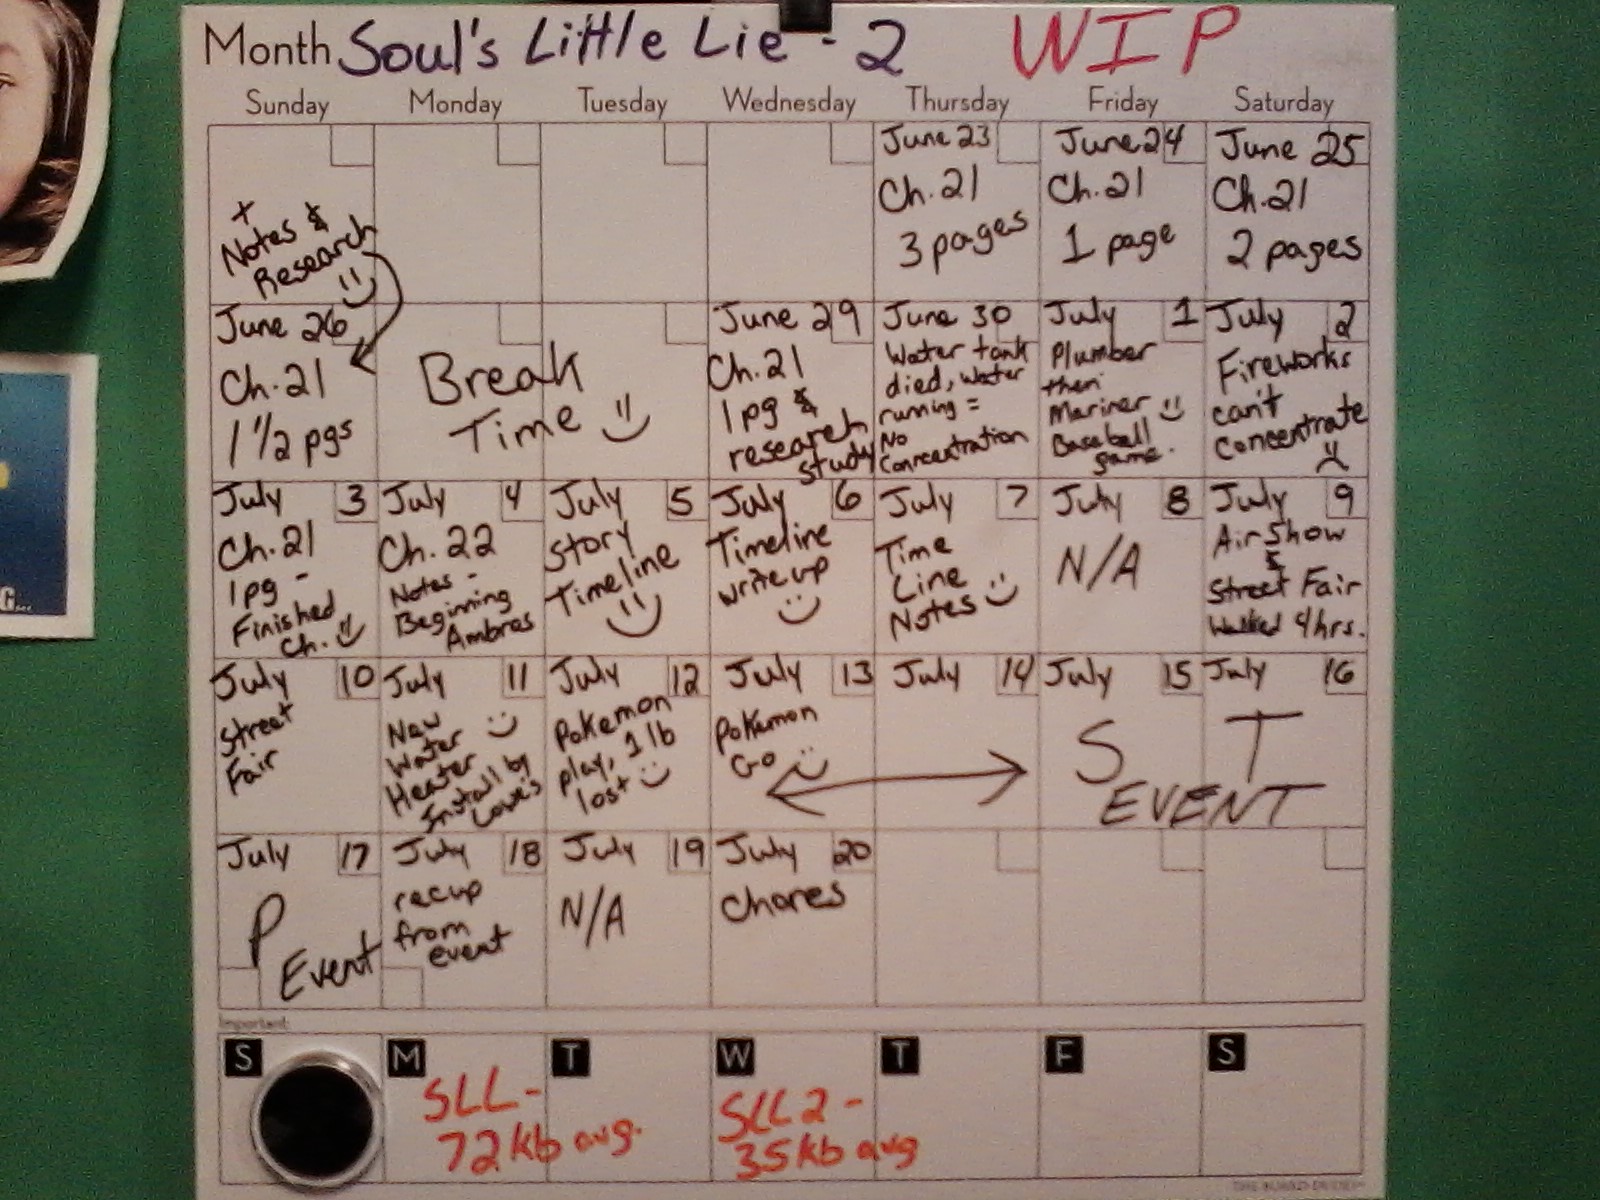 Month Soul's Little Lie - 2 WIP
Sunday Monday Tuesday Wednesday Thursday Friday Saturday
+
Notes &
Research
June 23
Ch. 21
3 pages
June 24
Ch. 21
1 page
June 25
Ch. 21
2 pages
June 26
Ch. 21
1 1/2 pgs
Break
Time
June 29
Ch. 21
1 pg &
research
study
June 30
Water tank
died, water
running =
No
Concentration
July 1
Plumber
then
Mariner
Baseball
game.
July 2
Fireworks
can't
concentrate
July 3
Ch. 21
1 pg -
Finished
Ch.
July 4
Ch. 22
Notes -
Beginning
Ambros
July 5
Story
Timeline
July 6
Timeline
write up
July 7
Time
Line
Notes
July 8
N/A
July 9
Air Show
&
Street Fair
Walked 4 hrs.
July 10
Street
Fair
July 11
New
Water
Heater
Install by
Lowe's
July 12
Pokemon
play, 1 lb
lost
July 13
Pokemon
Go
July 14
July 15
July 16
S T
EVENT
July 17
P
Event
July 18
recup
from
event
July 19
N/A
July 20
Chores
Important:
S M T W T F S
SLL -
72kb avg.
SLL 2 -
35kb avg
G...